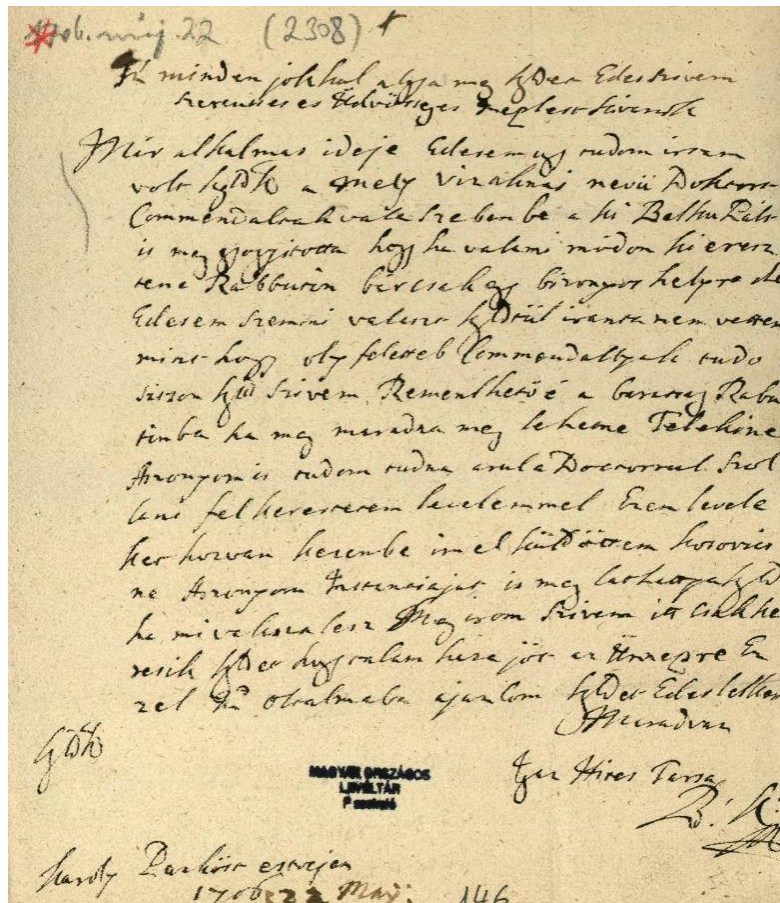 1706. máj. 22 (2308)
Ur minden jokkal algya meg kgdet Edes szivem
szerencses es Üdvösseges
Mar alkalmas ideje Edesem ugj tudom irtam
volt kgdk a mely nevü Doktort
Commendaltak vala Szebenbe a ki Pált
is meg gyogjitotta hogj ha valami modon ki eresz
tene Rabbutin bar csak egj bizonyos helyre de
Edesem szemmi valaszt kgdtül iranta nem vettem
mint hogj oly feletteb Commendallyak tudo
sitson kgd szivem Remenlhetö é a Rabu
tinba ha meg maradna meg lehetne Telekine
Aszonyom is tudom tudna arul a Doctorrul szol
lani fel kerestetem levelemmel Ezen levele
ket hozvan kezembe im el küldöttem
ne Aszonyom Instantiajat is meg lathattya kgd
ha mi valasza lesz Meg irom szivem itt csak he
resik kgdet haza jöt az Ünnepre Ez
zel Ur oltalmaba ajanlom kgdet Edes lelkem
Maradvan
kgdk
Igaz Hites Tarsa
B: K:
MAGYAR ORSZÁGOS
LEVÉLTÁR
P szekció
Karoly Pünköst estvejen
1706 22 Maj: 146